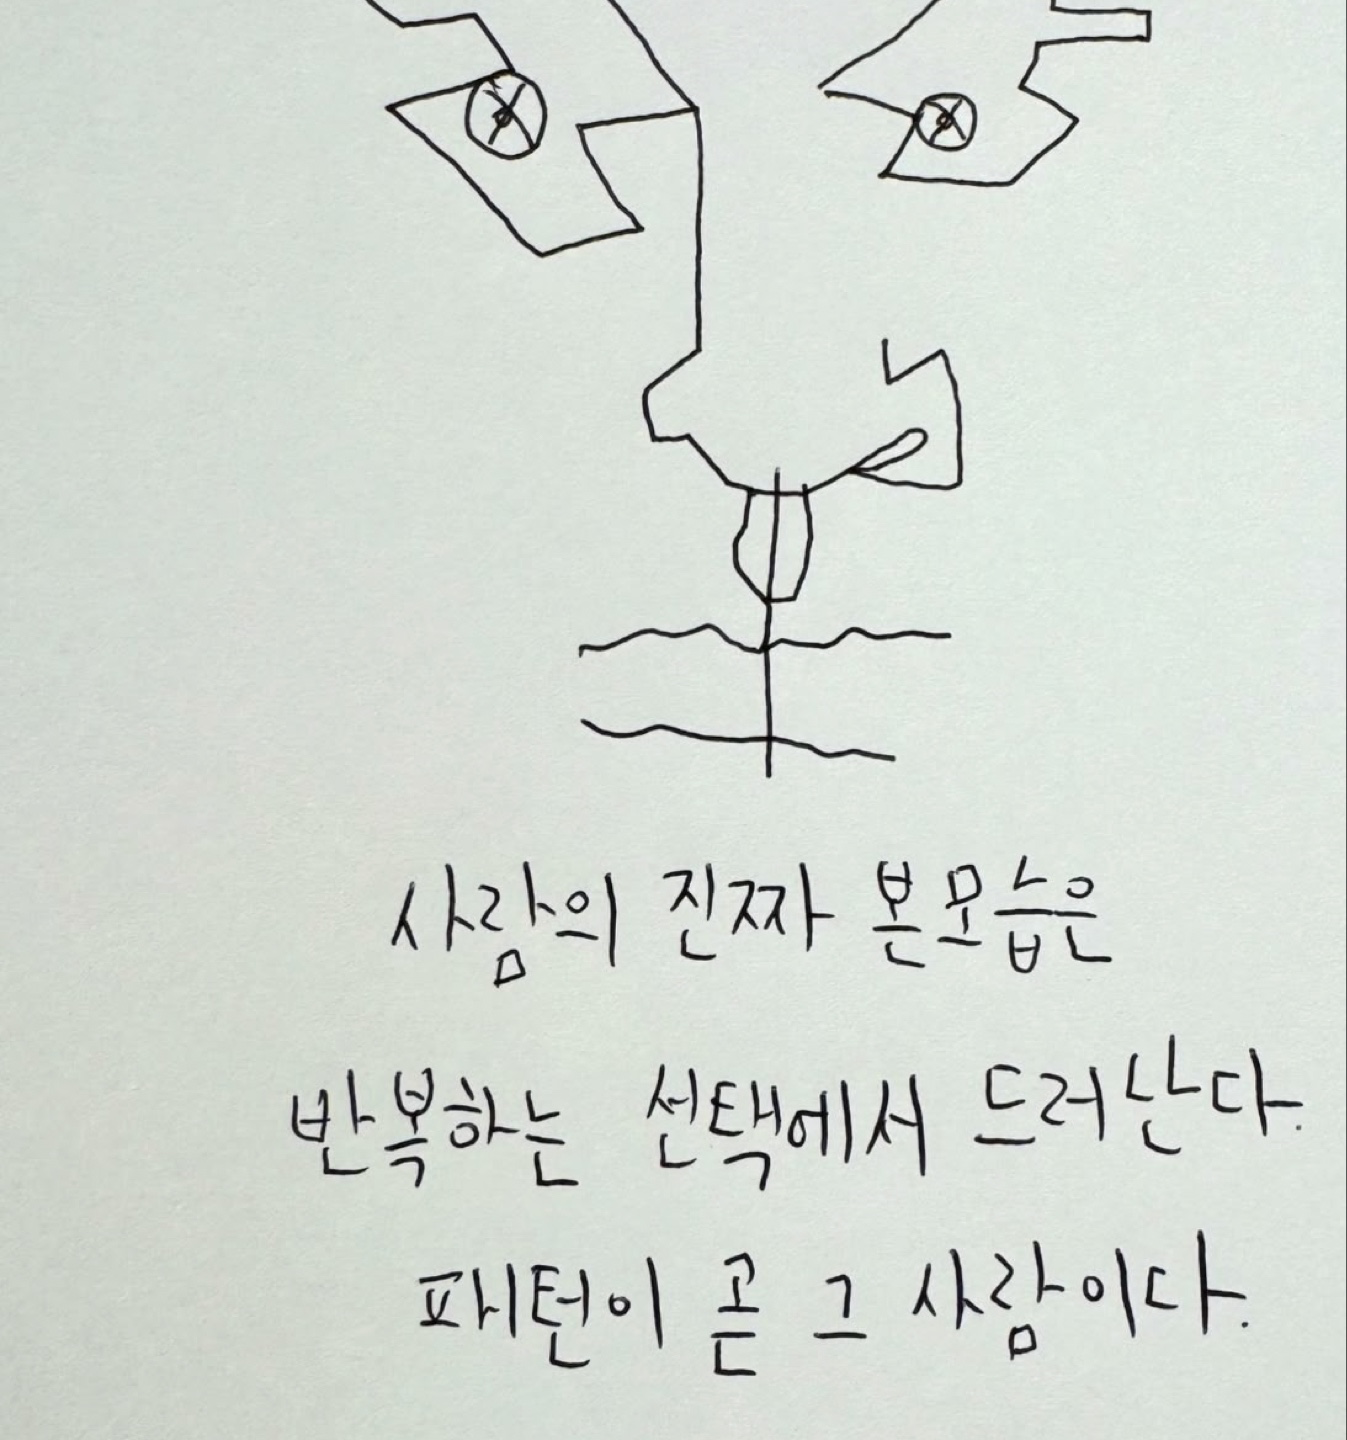 사람의 진짜 본모습은
반복하는 선택에서 드러난다.
패턴이 곧 그 사람이다.